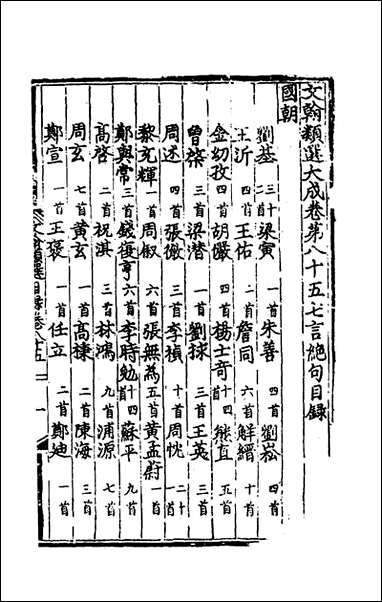 文翰類選大成卷第八十五七言絶句目録
國朝
劉基 三十二首 梁寅 一首 朱善 四首 劉崧 四首
王沂 一首 王佑 二首 詹同 六首 解縉 十首
金幼孜 四首 胡儼 四首 楊士奇 十四首 熊直 五首
曾棨 三首 梁潛 一首 劉球 三首 王英 三首
周述 四首 張徽 三首 李禎 十首 周忱 二十一首
黎充輝 一首 周叙 六首 張無為 五首 黃孟蔚 一首
鄭興常 三首 錢復亨 六首 李時勉 十四首 蘇平 九首
高啓 二首 祝淇 三首 林鴻 九首 浦源 七首
周玄 七首 黃玄 一首 高棅 二首 陳海 三首
鄭宣 一首 王褒 一首 任立 二首 鄭迪 一首